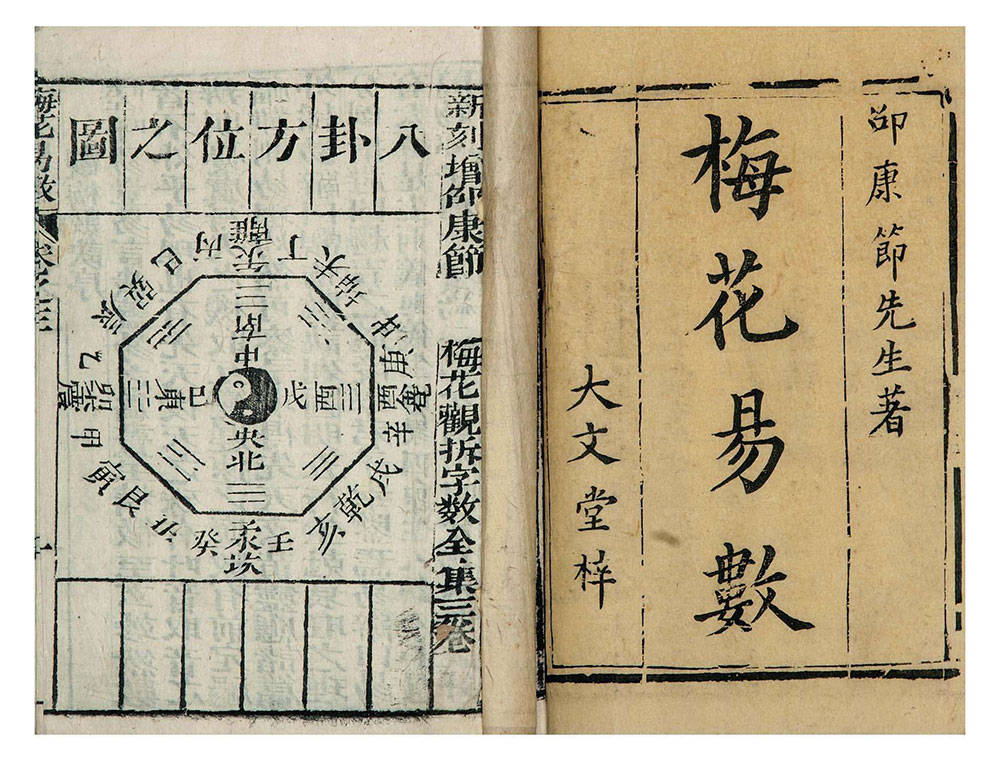 邵康節先生著
梅花易數
大文堂梓
新刻增邵康節
梅花觀拆字數全集三卷
八卦方位之圖
巳 丙 午 離 丁 未 坤 申
庚 酉 兌 辛 戌 乾 亥
壬 子 坎 癸 丑 艮 寅
甲 卯 震 乙 辰 巽
南
中
東 巳 戊 西
央
北
梅花易數
卷之三